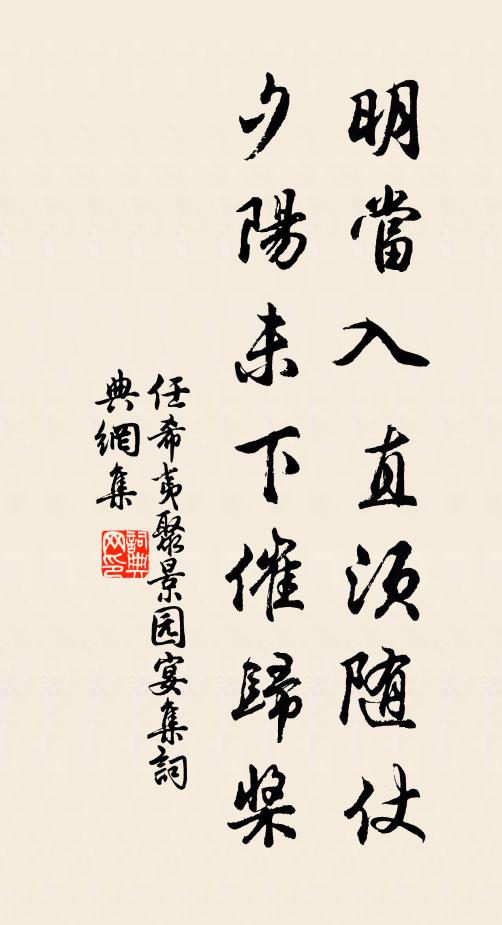 明當入直須随仗
夕陽未下催歸槳
任希夷聚景园宴集詞
典網集
詞典
网印